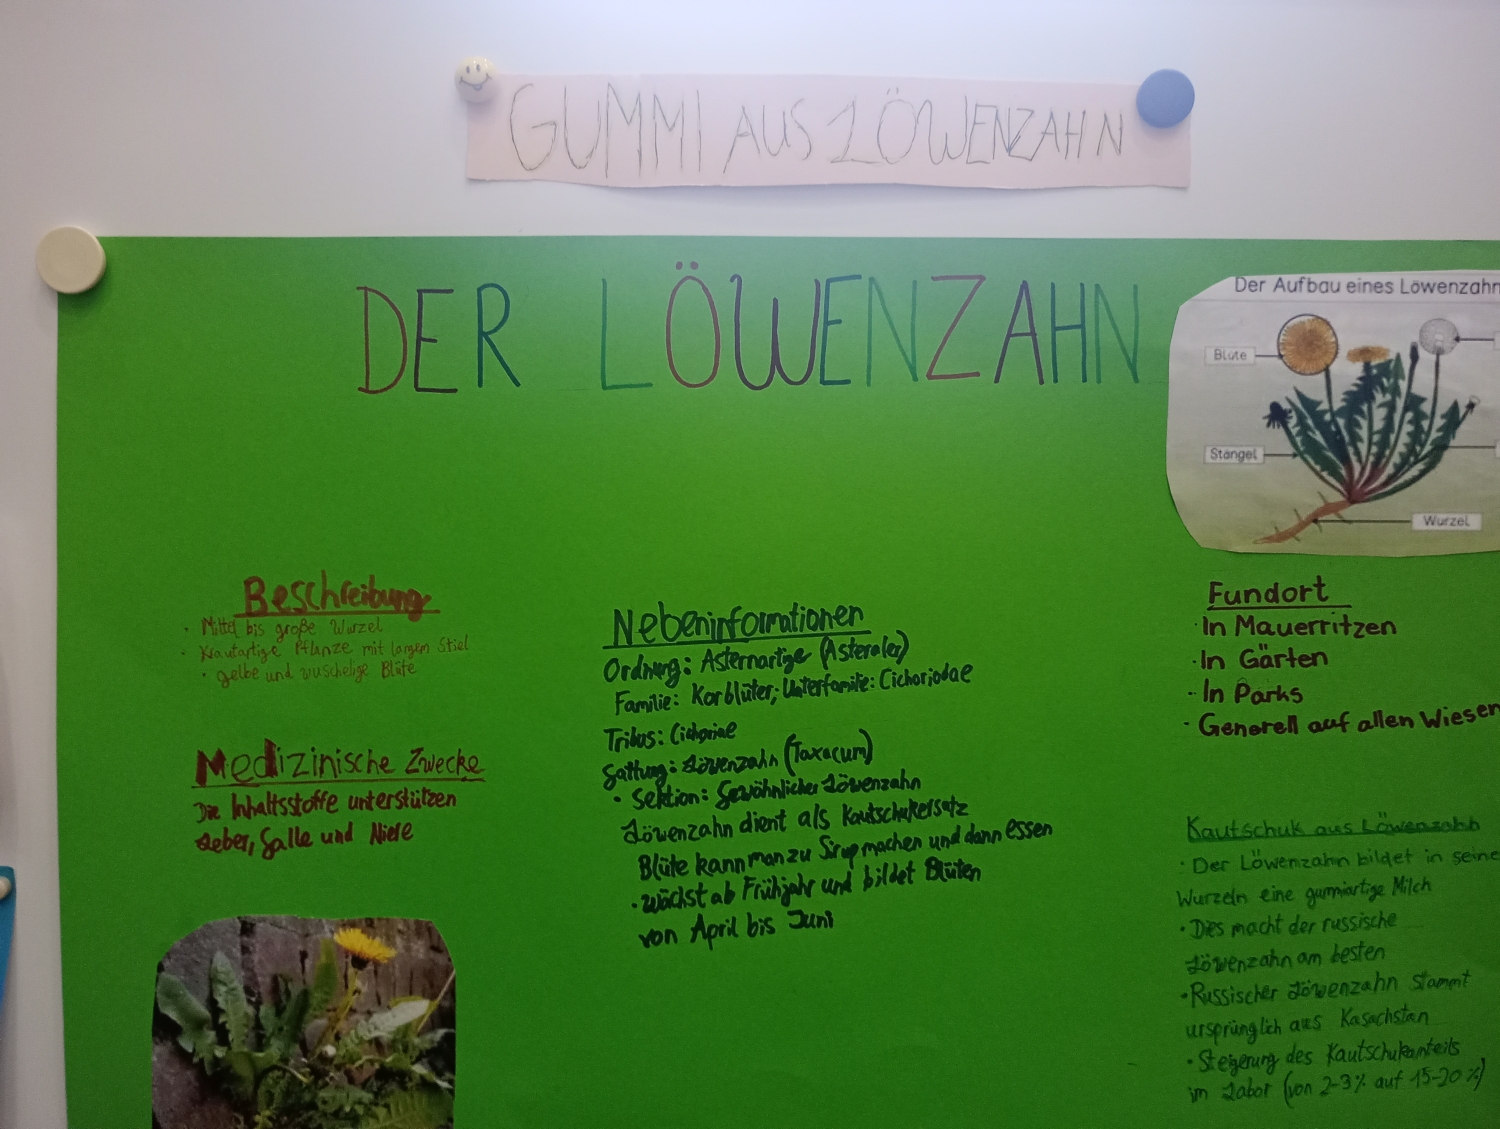 GUMMI AUS LÖWENZAHN
DER LÖWENZAHN
Der Aufbau eines Löwenzahn
Blüte
Stängel
Wurzel
Beschreibung
· Mittel bis große Wurzel
· Krautartige Pflanze mit langem Stiel
· gelbe und wuschelige Blüte
Medizinische Zwecke
Die Inhaltsstoffe unterstützen
Leber, Galle und Niere
Nebeninformationen
Ordnung: Asternartige (Asterales)
Familie: Korblüter; Unterfamilie: Cichoriodae
Tribus: Cichorine
Gattung: Löwenzahn (Taxacum)
· Sektion: Gewöhnlicher Löwenzahn
Löwenzahn dient als Kautschukersatz
Blüte kann man zu Sirup machen und dann essen
· Wächst ab Frühjahr und bildet Blüten
von April bis Juni
Fundort
· In Mauerritzen
· In Gärten
· In Parks
· Generell auf allen Wiesen
Kautschuk aus Löwenzahn
· Der Löwenzahn bildet in seine
Wurzeln eine gummiartige Milch
· Dies macht der russische
Löwenzahn am besten
· Russischer Löwenzahn stammt
ursprünglich aus Kasachstan
· Steigerung des Kautschukanteils
im Labor (von 2-3% auf 15-20%)